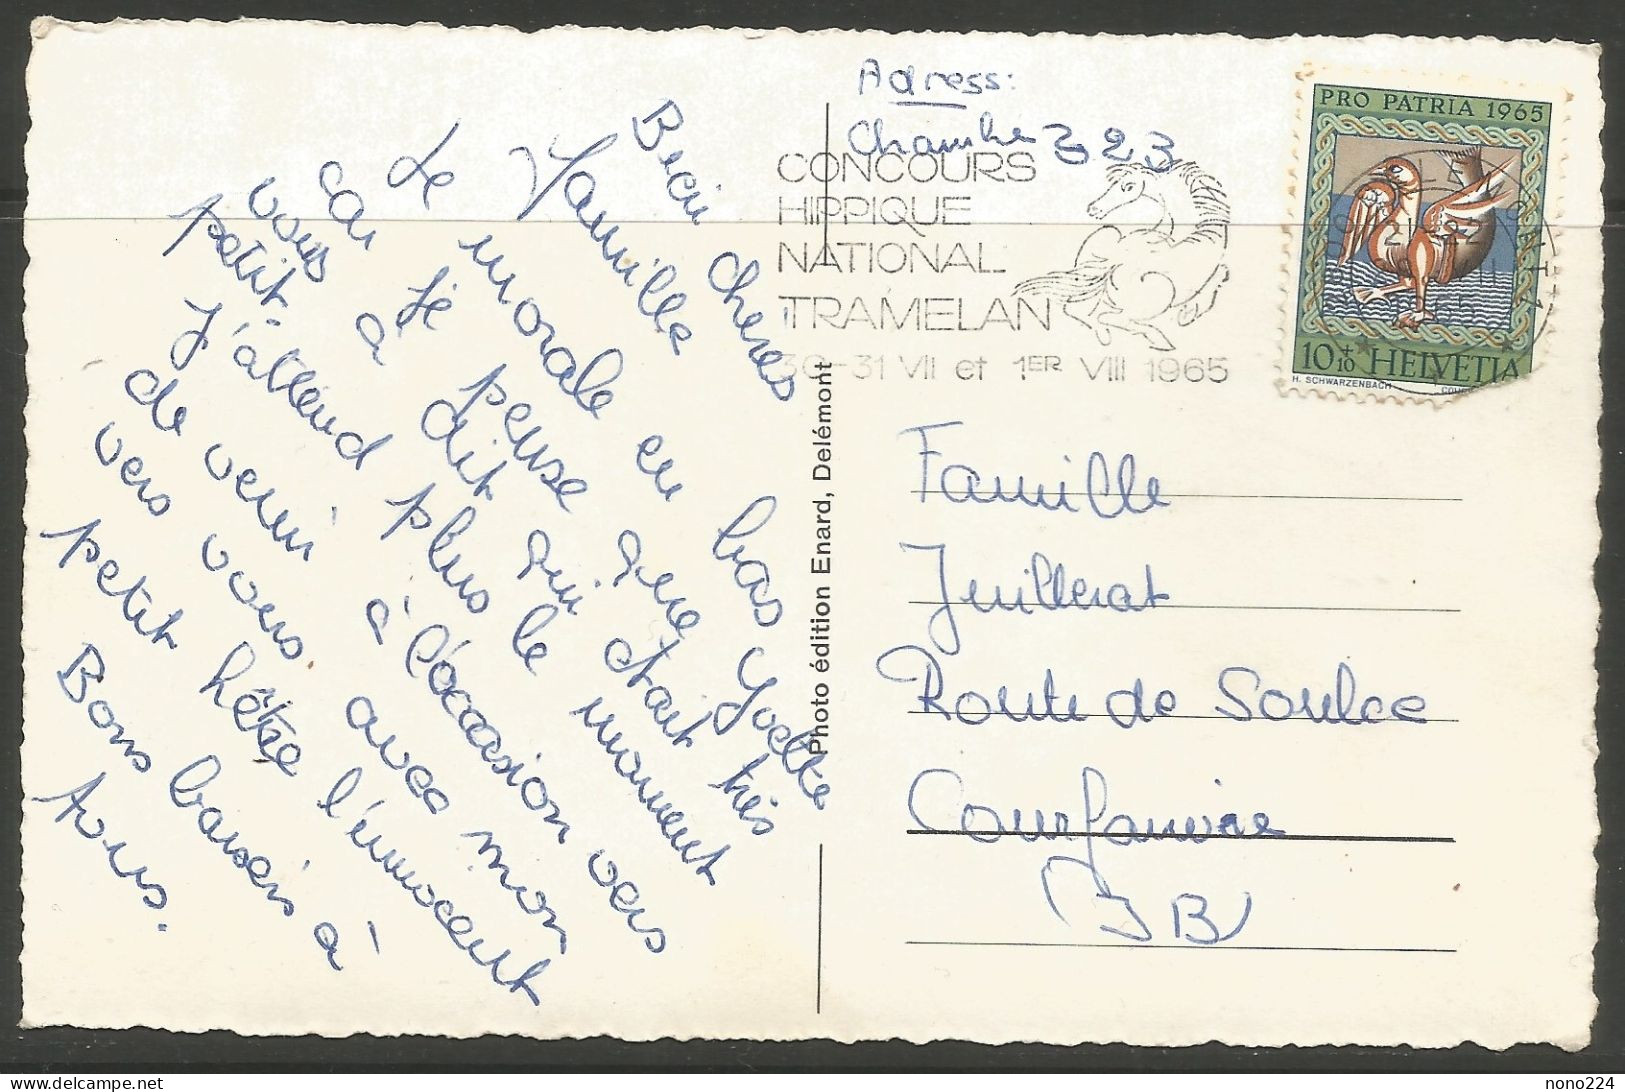 Bien cheres
Famille
Le morale en bas Yvette
car je pense que
vous a dit qui était très
petit. J'attend plus le moment
de venir à l'occasion vers
vers vous avec mon
petit hêtre l'ennocent
Bons baisers à
tous.
Adress:
Chambre 323
CONCOURS
HIPPIQUE
NATIONAL
TRAMELAN
30-31 VII et 1ER VIII 1965
PRO PATRIA 1965
10+10 HELVETIA
H. SCHWARZENBACH
Photo édition Enard, Delémont
Famille
Juillerat
Route de Soulce
Courfaivre
(JB)
delcampe.net
nono224